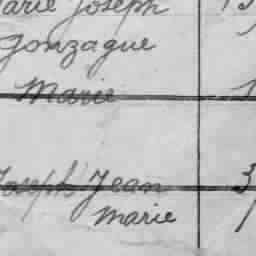 Marie Joseph 13
Gonzague 1
Marie 1
Joseph Jean 3
Marie 1